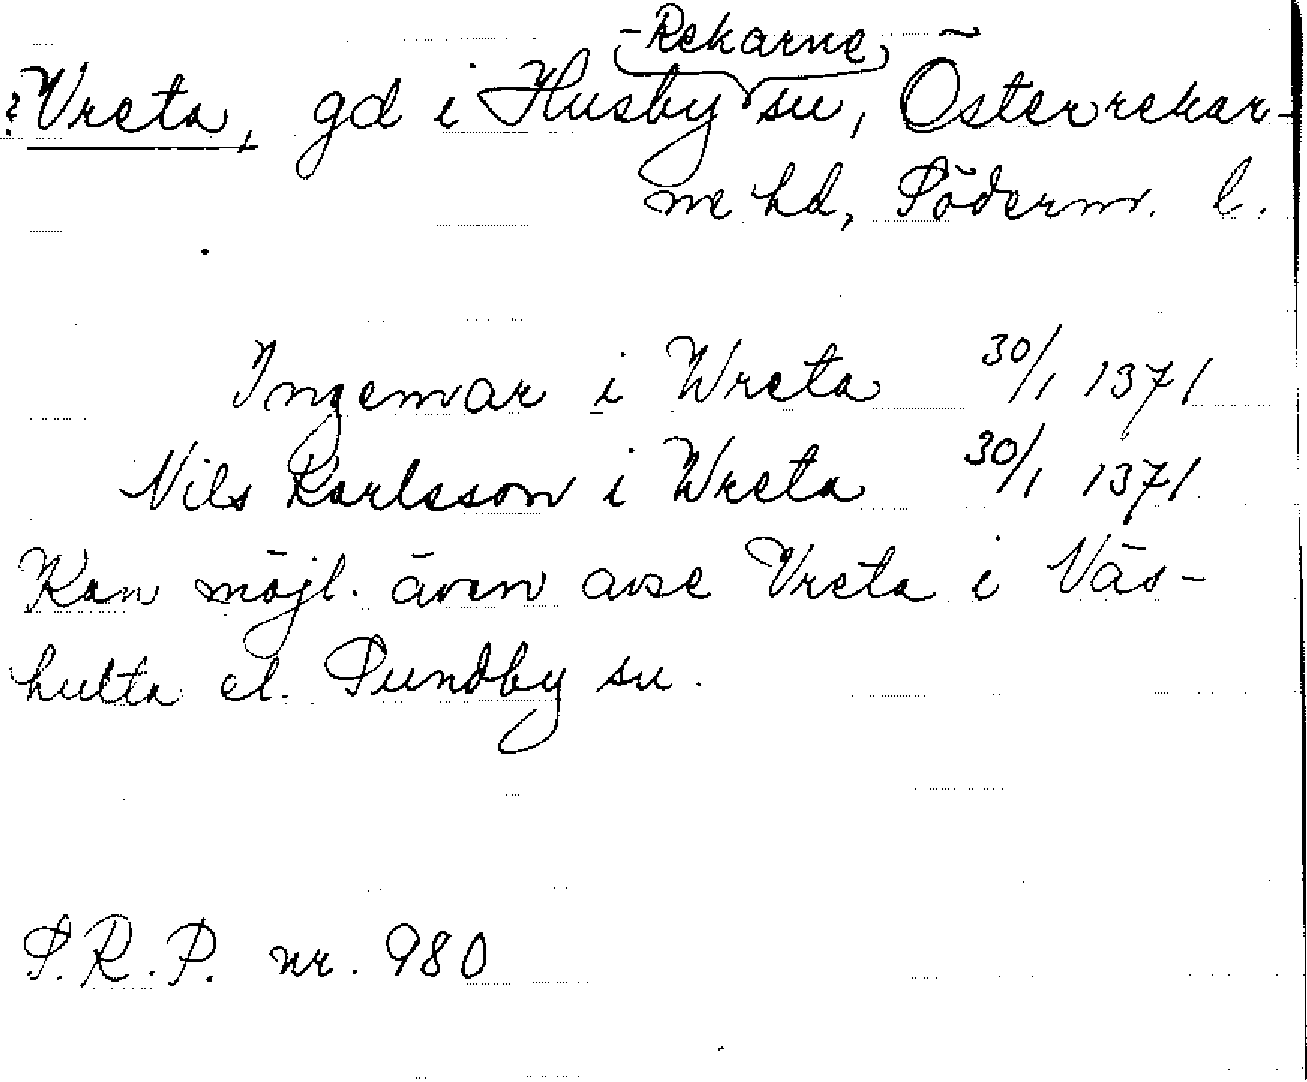 ?Vreta, gd i Husby-Rekarne sn, Österrekar-
ne hd, Söderm. l.
Ingemar i Wreta 30/1 1371
Nils Karlsson i Wreta 30/1 1371.
Kan möjl. även avse Vreta i Väs-
hulta el. Sundby sn.
S.R.P. nr. 980